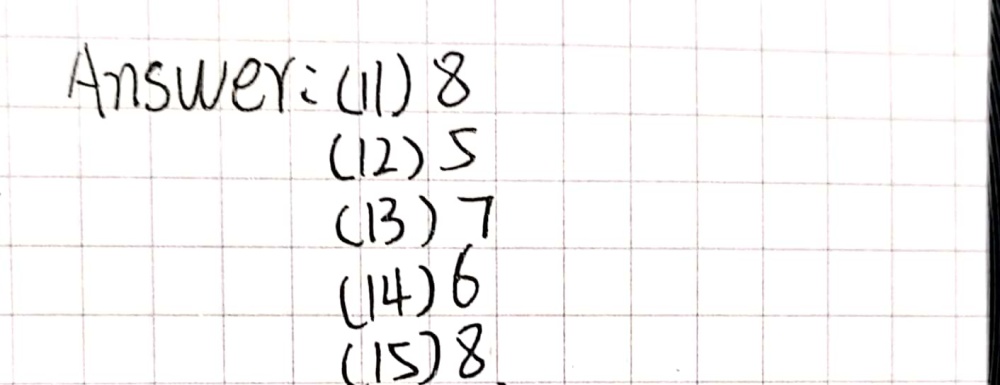 Answer: (11) 8
(12) 5
(13) 7
(14) 6
(15) 8